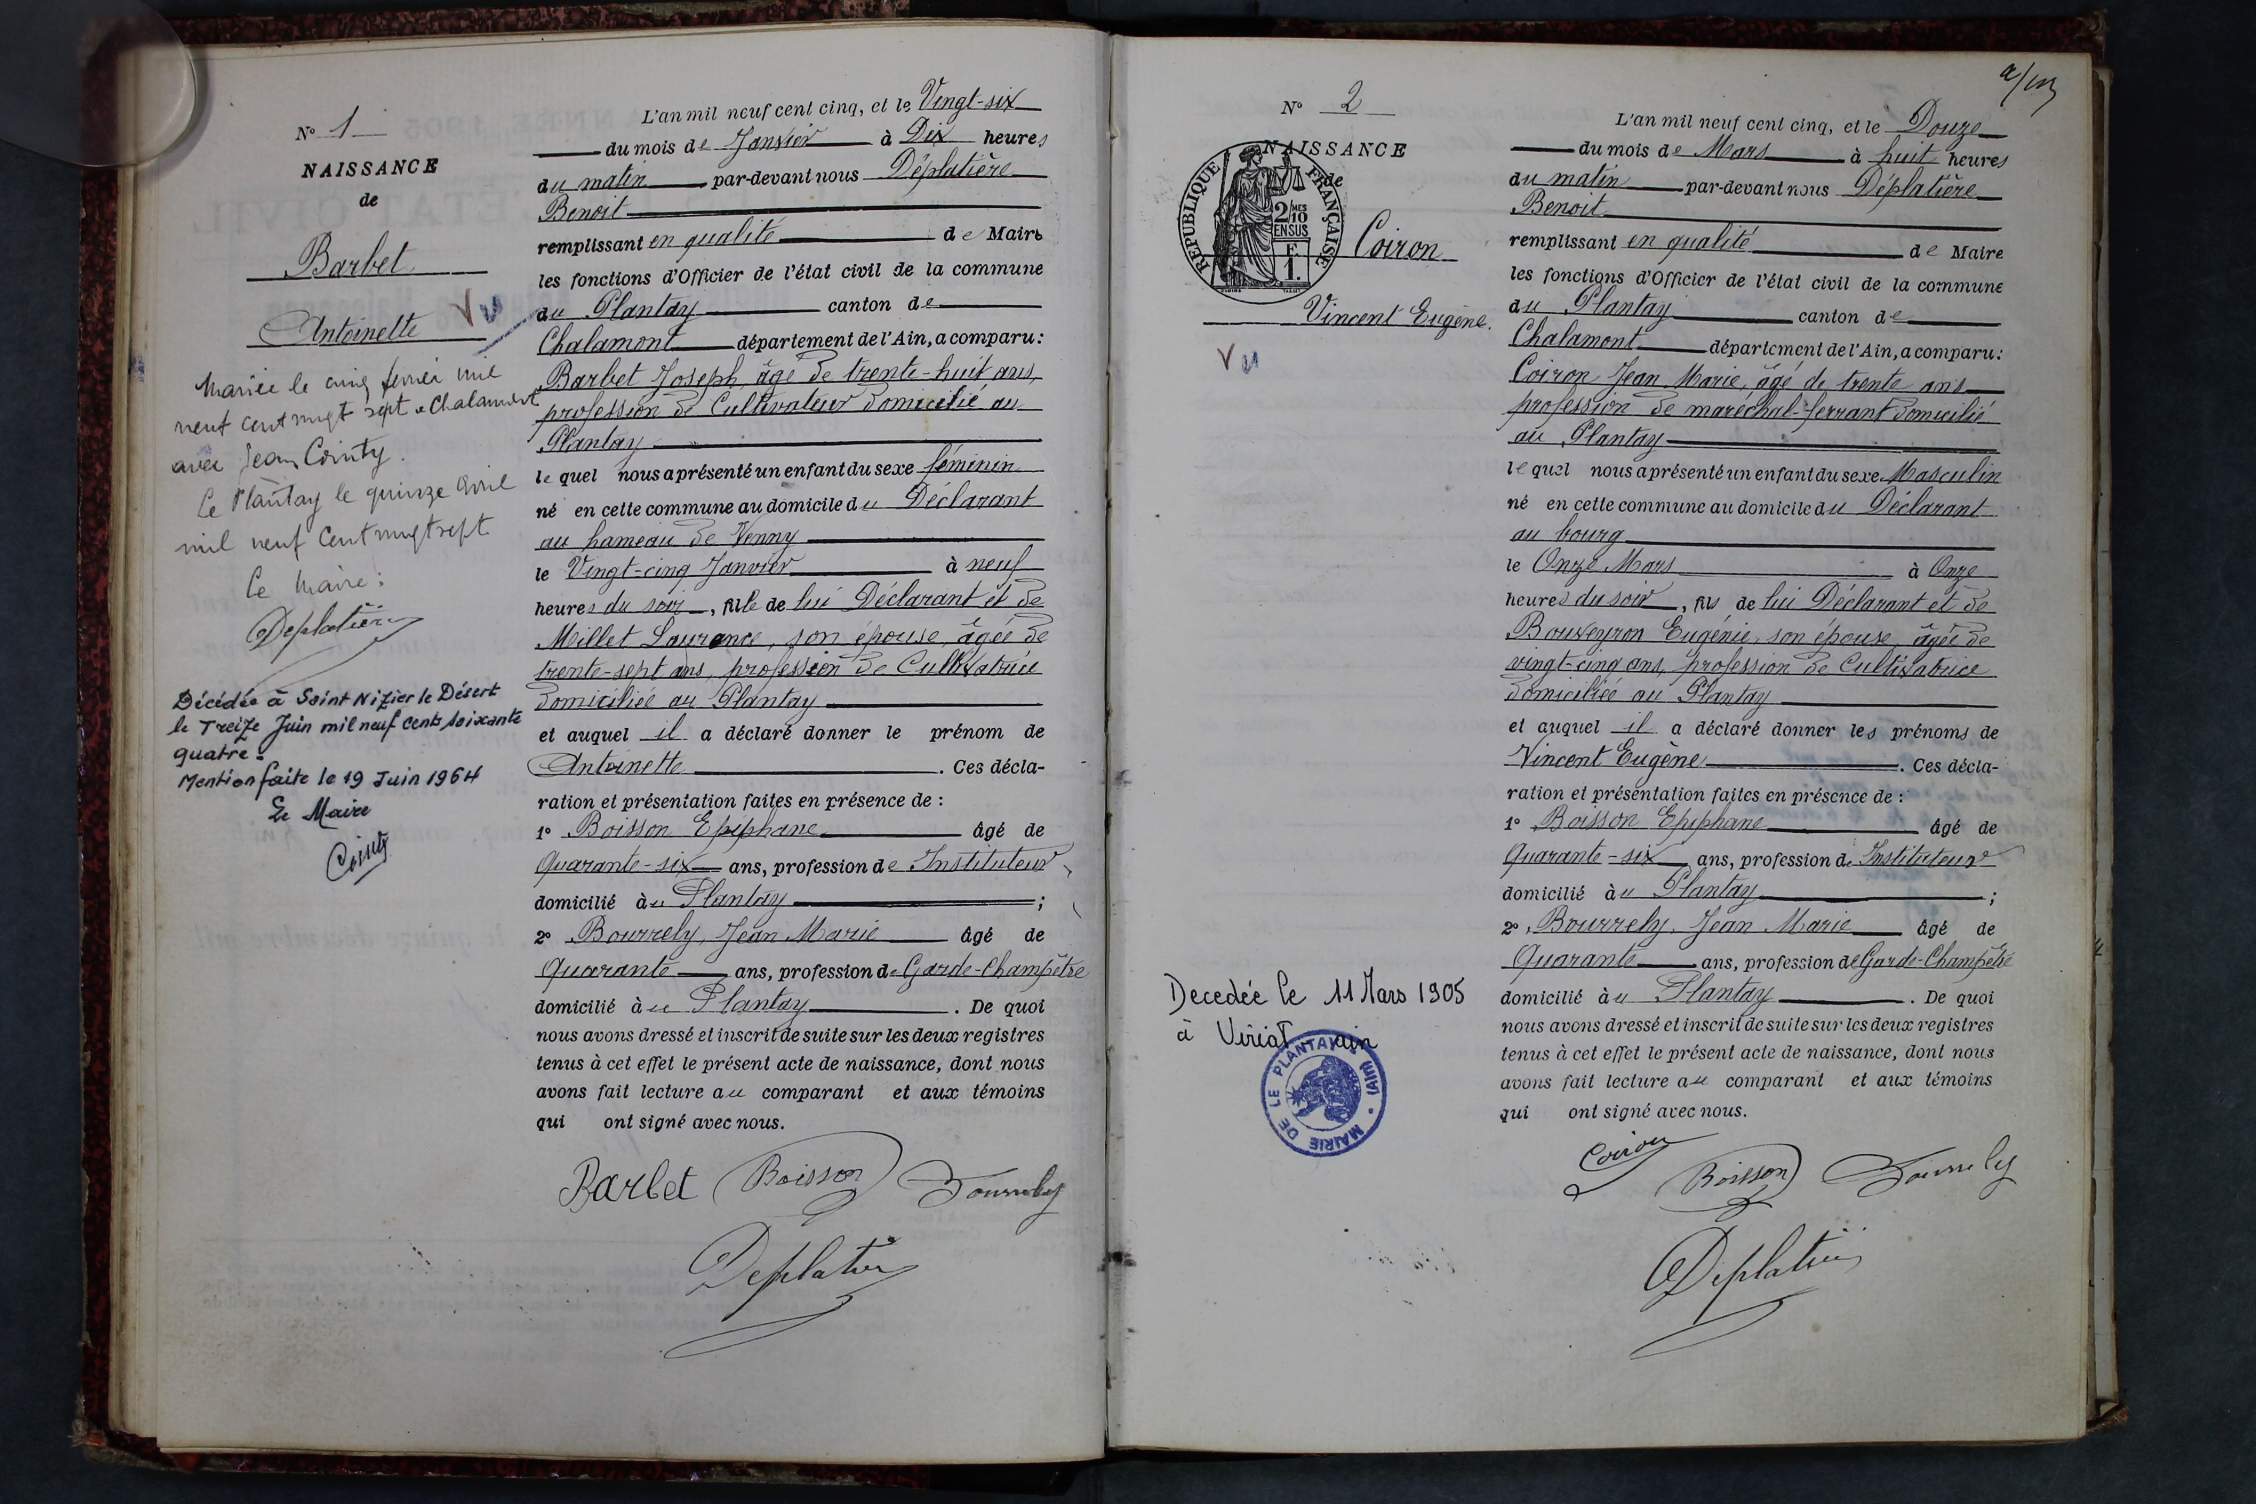 N° 1
NAISSANCE
de
Barbet
Antoinette
Vu
Mariée le cinq février mil
neuf cent vingt sept a Chalamont
avec Jean Cointy.
Le Plantay le quinze avril
mil neuf cent vingt sept
Le Maire:
Deplatière
Décédée à Saint Nizier le Désert
le Treize Juin mil neuf cents soixante
quatre.
Mention faite le 19 Juin 1964
Le Maire
Cointy
L'an mil neuf cent cinq, et le Vingt-six
du mois de Janvier à Dix heures
du matin par-devant nous Déplatière
Benoit
remplissant en qualité de Maire
les fonctions d'Officier de l'état civil de la commune
du Plantay canton de
Chalamont département de l'Ain, a comparu:
Barbet Joseph, âgé de trente-huit ans,
profession de Cultivateur domicilié au
Plantay
le quel nous a présenté un enfant du sexe féminin
né en cette commune au domicile du Déclarant
au hameau de Venny
le Vingt-cinq Janvier à neuf
heures du soir, fille de lui Déclarant et de
Millet Laurence, son épouse, âgée de
trente-sept ans, profession de Cultivatrice
domiciliée au Plantay
et auquel il a déclaré donner le prénom de
Antoinette. Ces décla-
ration et présentation faites en présence de :
1° Boisson Epiphane âgé de
Quarante-six ans, profession de Instituteur
domicilié àu Plantay ;
2° Bourrely, Jean Marie âgé de
Quarante ans, profession de Garde-Champêtre
domicilié àu Plantay. De quoi
nous avons dressé et inscrit de suite sur les deux registres
tenus à cet effet le présent acte de naissance, dont nous
avons fait lecture au comparant et aux témoins
qui ont signé avec nous.
Barbet Boisson Bourrely
Deplatière
N° 2
NAISSANCE
de
REPUBLIQUE FRANÇAISE
2/10 MES
EN SUS
F
1.
Coiron
Vincent Eugène.
Vu
Decedée le 11 Mars 1905
à Viriat ain
MAIRIE DE LE PLANTAY (AIN)
L'an mil neuf cent cinq, et le Douze
du mois de Mars à huit heures
du matin par-devant nous Déplatière
Benoit
remplissant en qualité de Maire
les fonctions d'Officier de l'état civil de la commune
du Plantay canton de
Chalamont département de l'Ain, a comparu:
Coiron Jean Marie, âgé de trente ans
profession de maréchal-ferrant domicilié
au Plantay
le quel nous a présenté un enfant du sexe Masculin
né en cette commune au domicile du Déclarant
au bourg
le Onze Mars à Onze
heures du soir, fils de lui Déclarant et de
Bouveyron Eugénie, son épouse, âgée de
vingt-cinq ans, profession de Cultivatrice
domiciliée au Plantay
et auquel il a déclaré donner les prénoms de
Vincent Eugène. Ces décla-
ration et présentation faites en présence de :
1° Boisson Epiphane âgé de
Quarante-six ans, profession de Instituteur
domicilié àu Plantay ;
2° Bourrely, Jean Marie âgé de
Quarante ans, profession de Garde-Champêtre
domicilié àu Plantay. De quoi
nous avons dressé et inscrit de suite sur les deux registres
tenus à cet effet le présent acte de naissance, dont nous
avons fait lecture au comparant et aux témoins
qui ont signé avec nous.
Coiron Boisson Bourrely
Deplatière